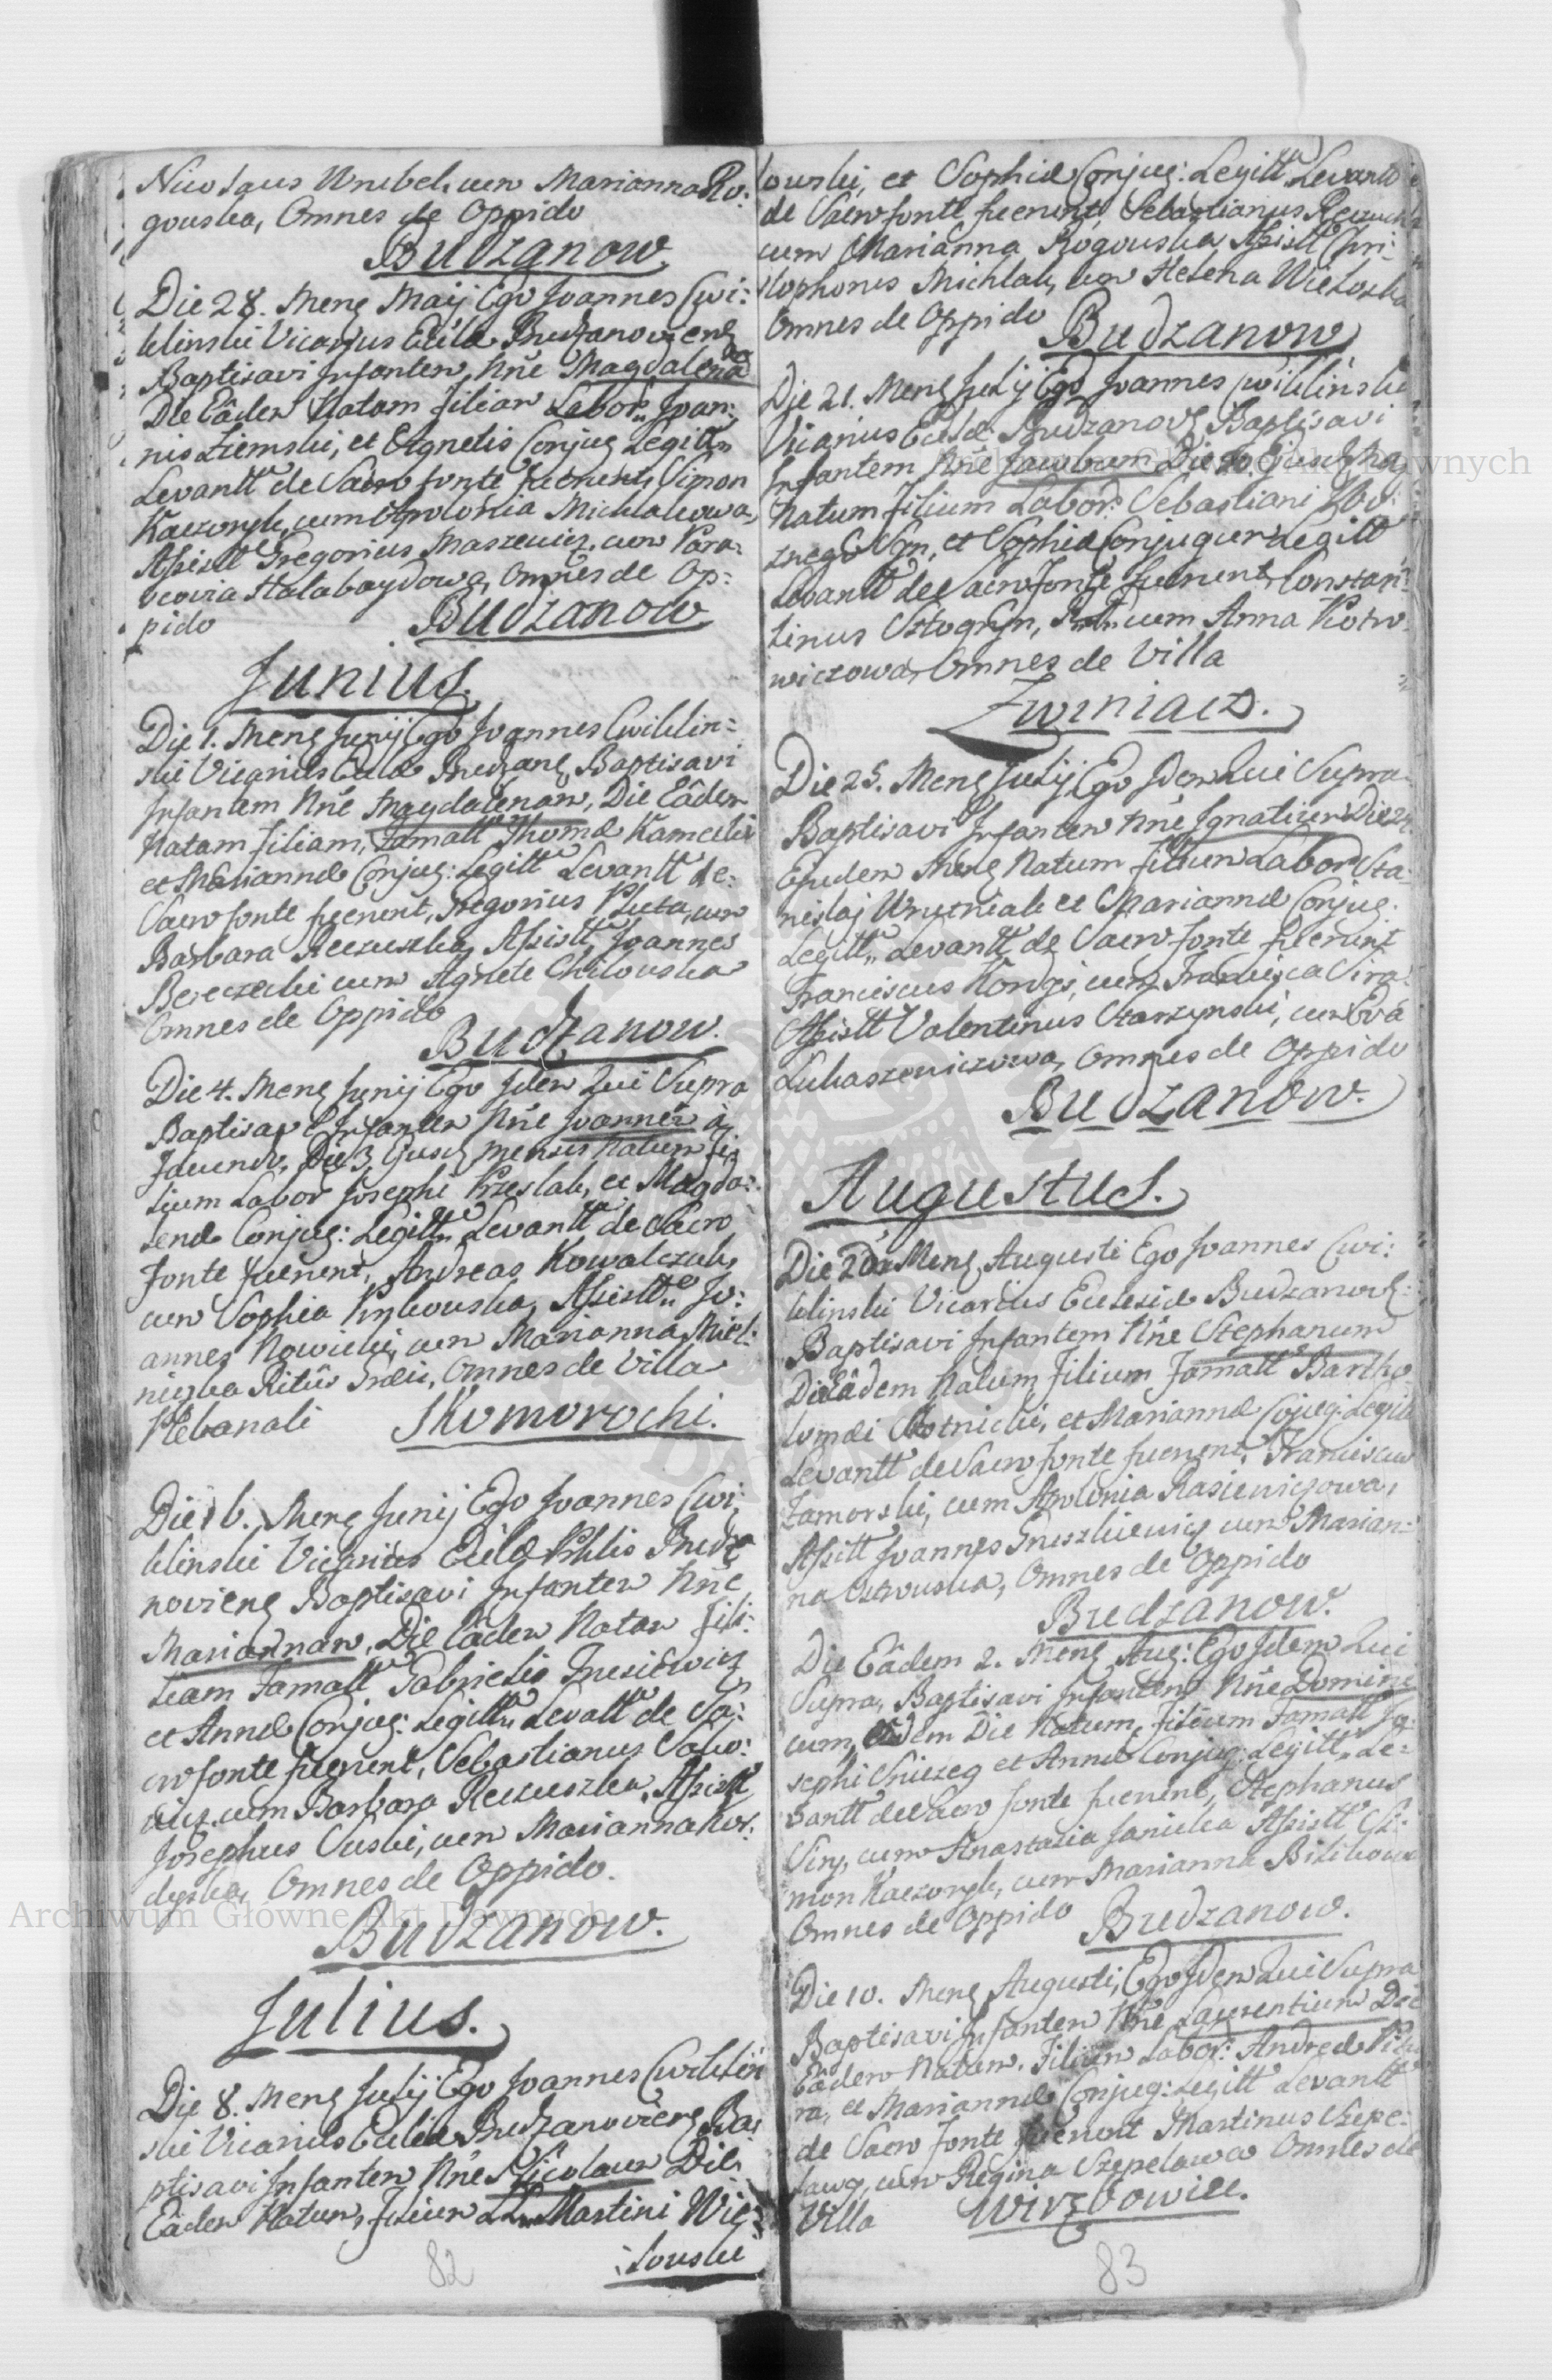 Nicolaus Wrubel, cum Marianna Ro:
gouska, Omnes de Oppido
Budzanow
Die 28. Mens Maij Ego Joannes Cwi:
klinski Vicarius Eccl Budzanoviens
Baptisavi Infantem Nne Magdalena
Die Eâdem Natam filiam Labor: Joan:
nis Ziemski, et Agnetis Conjug Legitt
Levantt de Sacro fonte fuerunt, Simon
Kaczorek, cum Apolonia Michalcowa,
Assistt Gregorius Maszewicz, cum Para:
scevia Halabaydowa, Omnes de Op:
pido Budzanow
Junius.
Die 1. Mens Junij Ego Joannes Cwiklin:
ski Vicarius Eccl Budzan Baptisavi
Infantem Nne Magdalenam, Die Eâdem
Natam filiam, Famatt Thomæ
et Mariannæ Conjug: Legitt Levantt de
Sacro fonte fuerunt, Gregorius Pluta, cum
Barbara Reczuszka, Assistt Joannes
Bereczecki cum Agnete Chilouska
Omnes de Oppido
Budzanow.
Die 4. Mens Junij Ego Idem Qui Supra
Baptisavi Infantem Nne Joannem à
Die 3 Ejusd Mensis Natum fi:
lium Labor Josephi Przeslak, et Magda:
lenæ Conjug: Legitt Levantt de Sacro
Fonte fuerunt, Andreas Kowalczuk,
cum Sophia Assistt Jo:
annes Nowicki, cum Marianna Miel:
niczka Ritûs Omnes de Villa
Plebanali Skomorochi.
Die 16. Mens Junij Ego Joannes Cwi:
klinski Vicarius Budza
noviens Baptisavi Infantem Nne
Mariannam, Die Eâdem Natam fili:
liam Famatt Gabrielis
et Annæ Conjug: Legitt Levatt de Sa:
cro fonte fuerunt, Sebastianus
cum Barbara Reczuszka, Assistt
Josephus cum Marianna Kor:
dyska, Omnes de Oppido.
Budzanow.
Julius.
Die 8. Mens Julij Ego Joannes Cwiklin
ski Vicarius Eccliæ Budzanoviens Ba:
ptisavi Infantem Nne Nicolaum Die
Eâdem Natum, filium Martini Wie:
louski
82
louski, et Sophiæ Conjug: Legitt Levantt
de Sacro fonte fuerunt, Sebastianus
cum Marianna Rogouska Assistt Chri:
stophorus Michlak, cum Helena Wielouska
Omnes de Oppido Budzanow
Die 21. Mens Julij Ego Joannes Cwiklinski
Vicarius Eccl: Budzanov Baptisavi
Infantem Nne Jacobum Die 20 Ejusd Mens
Natum filium Labor: Sebastiani
et Sophiæ Conjugum Legitt
Levantt de Sacro Fonte fuerunt, Constan:
tinus cum Anna Kotw
wiczowa, Omnes de Villa
Zwiniacz.
Die 25. Mens Julij Ego Idem Qui Supra
Baptisavi Infantem Nne Ignatium Die 24
Ejusdem Mens Natum filium Labor Sta:
nislaj et Mariannæ Conjug:
Legitt Levantt de Sacro fonte fuerunt
Franciscus cum Francisca
Assistt Valentinus Starzynski, cum Eva
Lukaszewiczowa, Omnes de Oppido
Budzanow.
Augustus.
Die 2da Mens Augusti Ego Joannes Cwi:
klinski Vicarius Ecclesiæ Budzanov:
Baptisavi Infantem Nne Stephanum
Die Eâdem Natum filium Famatt Bartho
lomæi et Mariannæ Cojug: Legitt
Levantt de Sacro fonte fuerunt, Franciscus
Zamorski, cum Apolonia Rasiewiczowa,
Assistt Joannes cum Marian:
na Omnes de Oppido
Budzanow.
Die Eâdem 2. Mens Aug: Ego Idem Qui
Supra, Baptisavi Infantem Nne Domini
cum, Eâdem Die Natum, filium Famatt Jo:
sephi et Annæ Conjug: Legitt Le:
vantt de Sacro fonte fuerunt, Stephanus
cum Anastasia Janicka Assistt Si:
mon Kaczorek, cum Marianna
Omnes de Oppido Budzanow.
Die 10. Mens Augusti, Ego Idem Qui Supra
Baptisavi Infantem Nne Laurentium Die
Eâdem Natum, filium Labor: Andreæ
ra, et Mariannæ Conjug: Legitt Levantt
de Sacro fonte fuerunt Martinus Szepe:
lawy, cum Regina Szepelawa Omnes de
Villa Wirzbowiec.
83
Archiwum Główne Akt Dawnych
Archiwum Główne Akt Dawnych